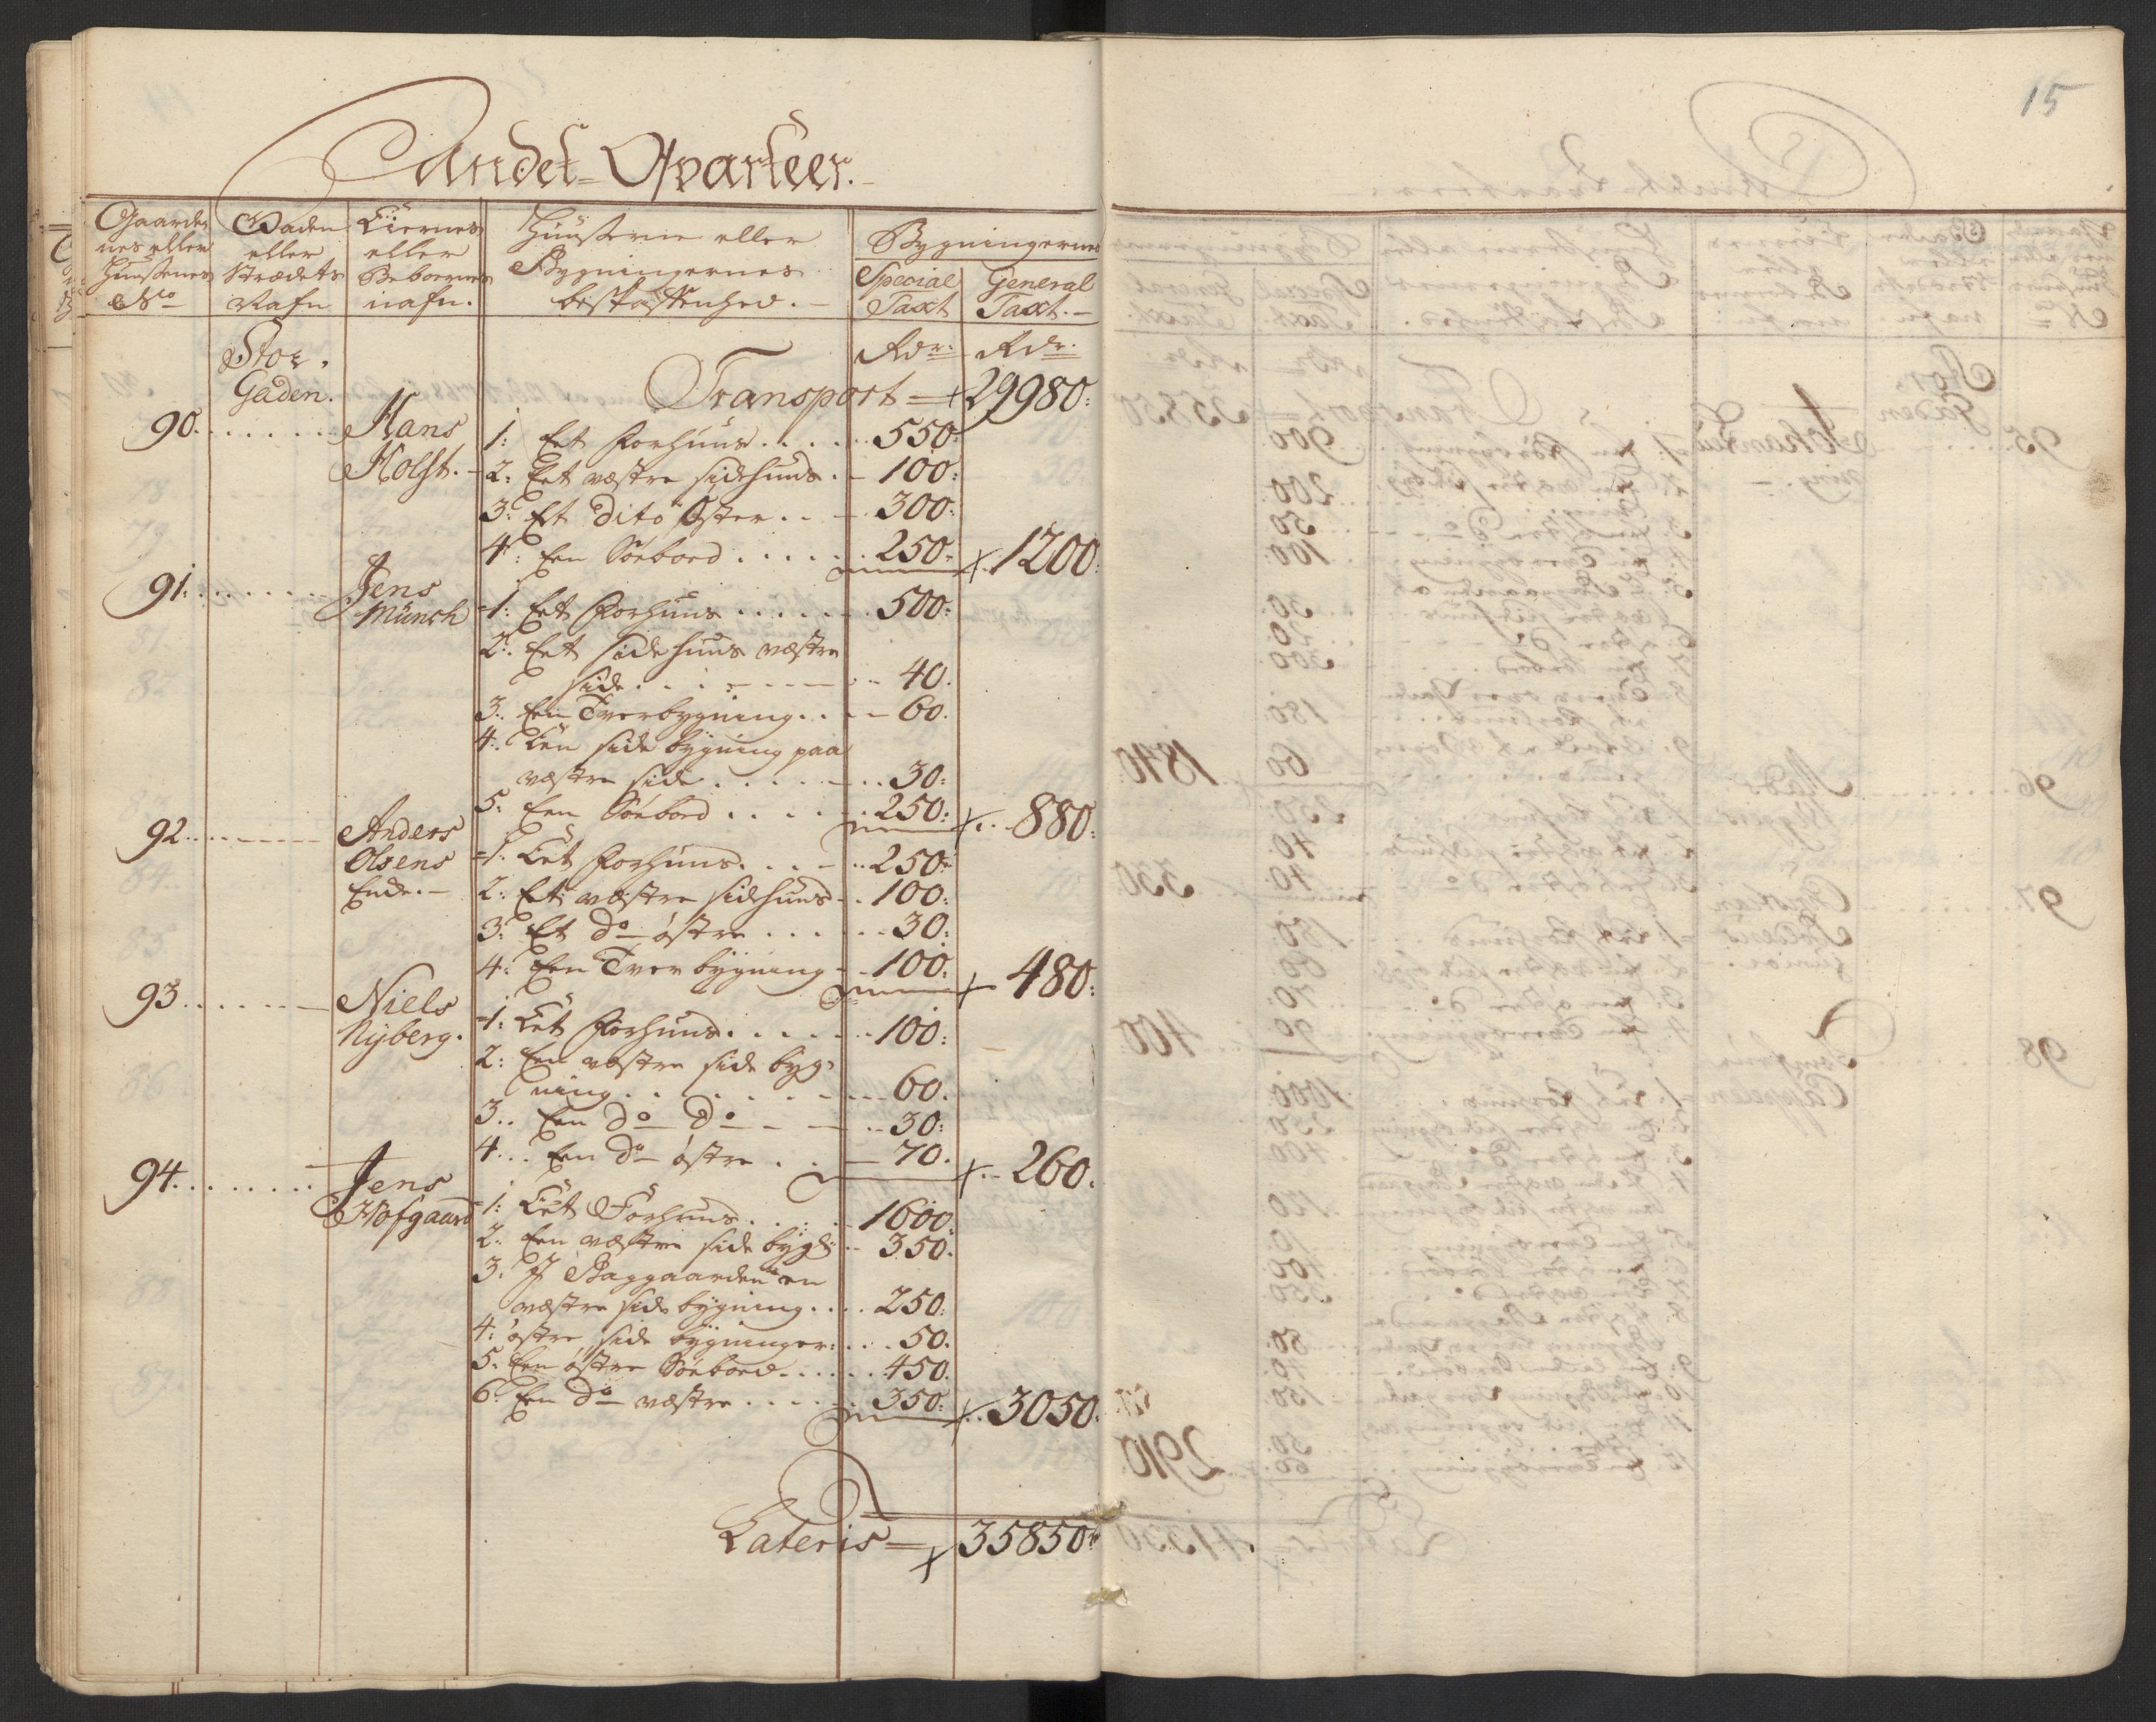 15
Andet Qvarteer.
Gaarder
nes eller
Huusenes
No
Gaden
eller
Strædets
Nafn
Eiernes
eller
Beboernes
nafn.
Huuserne eller
Bygningernes
beskaffenhed.
Bygningernes
Special Taxt
General Taxt.
Stor
Gaden.
Rdr. Rdr.
Transport = 29980:
90. Hans
Holst.
1: Eet Forhuus 550:
2: Eet væstre sidehuus 100:
3: Et Dito Øster 300:
4: Een Søeboed 250: 1200:
91. Jens
Münch
1: Eet Forhuus 500:
2: Eet sidehuus væstre
side 40.
3: Een Tverbygning 60.
4: Een side bygning paa
væstre side 30:
5: Een Søeboed 250: 880:
92. Anders
Olsens
Enke.
1: Eet Forhuus 250:
2: Et væstre sidehuus 100:
3: Et Do østre 30:
4: Een Tver bygning 100: 480:
93. Niels
Nyberg.
1: Eet Forhuus 100:
2: Een væstre side byg
ning 60.
3: Een Do Do 30:
4. Een Do østre 70. 260.
94. Jens
Hofgaard
1: Eet Forhuus 1600:
2: Een væstre side bygn: 350.
3: J Baggaarden en
væstre side bygning 250:
4: østre side bygninger: 50.
5: Een østre Søeboed 450.
6: Een Do væstre 350: 3050.
Lateris = 35850